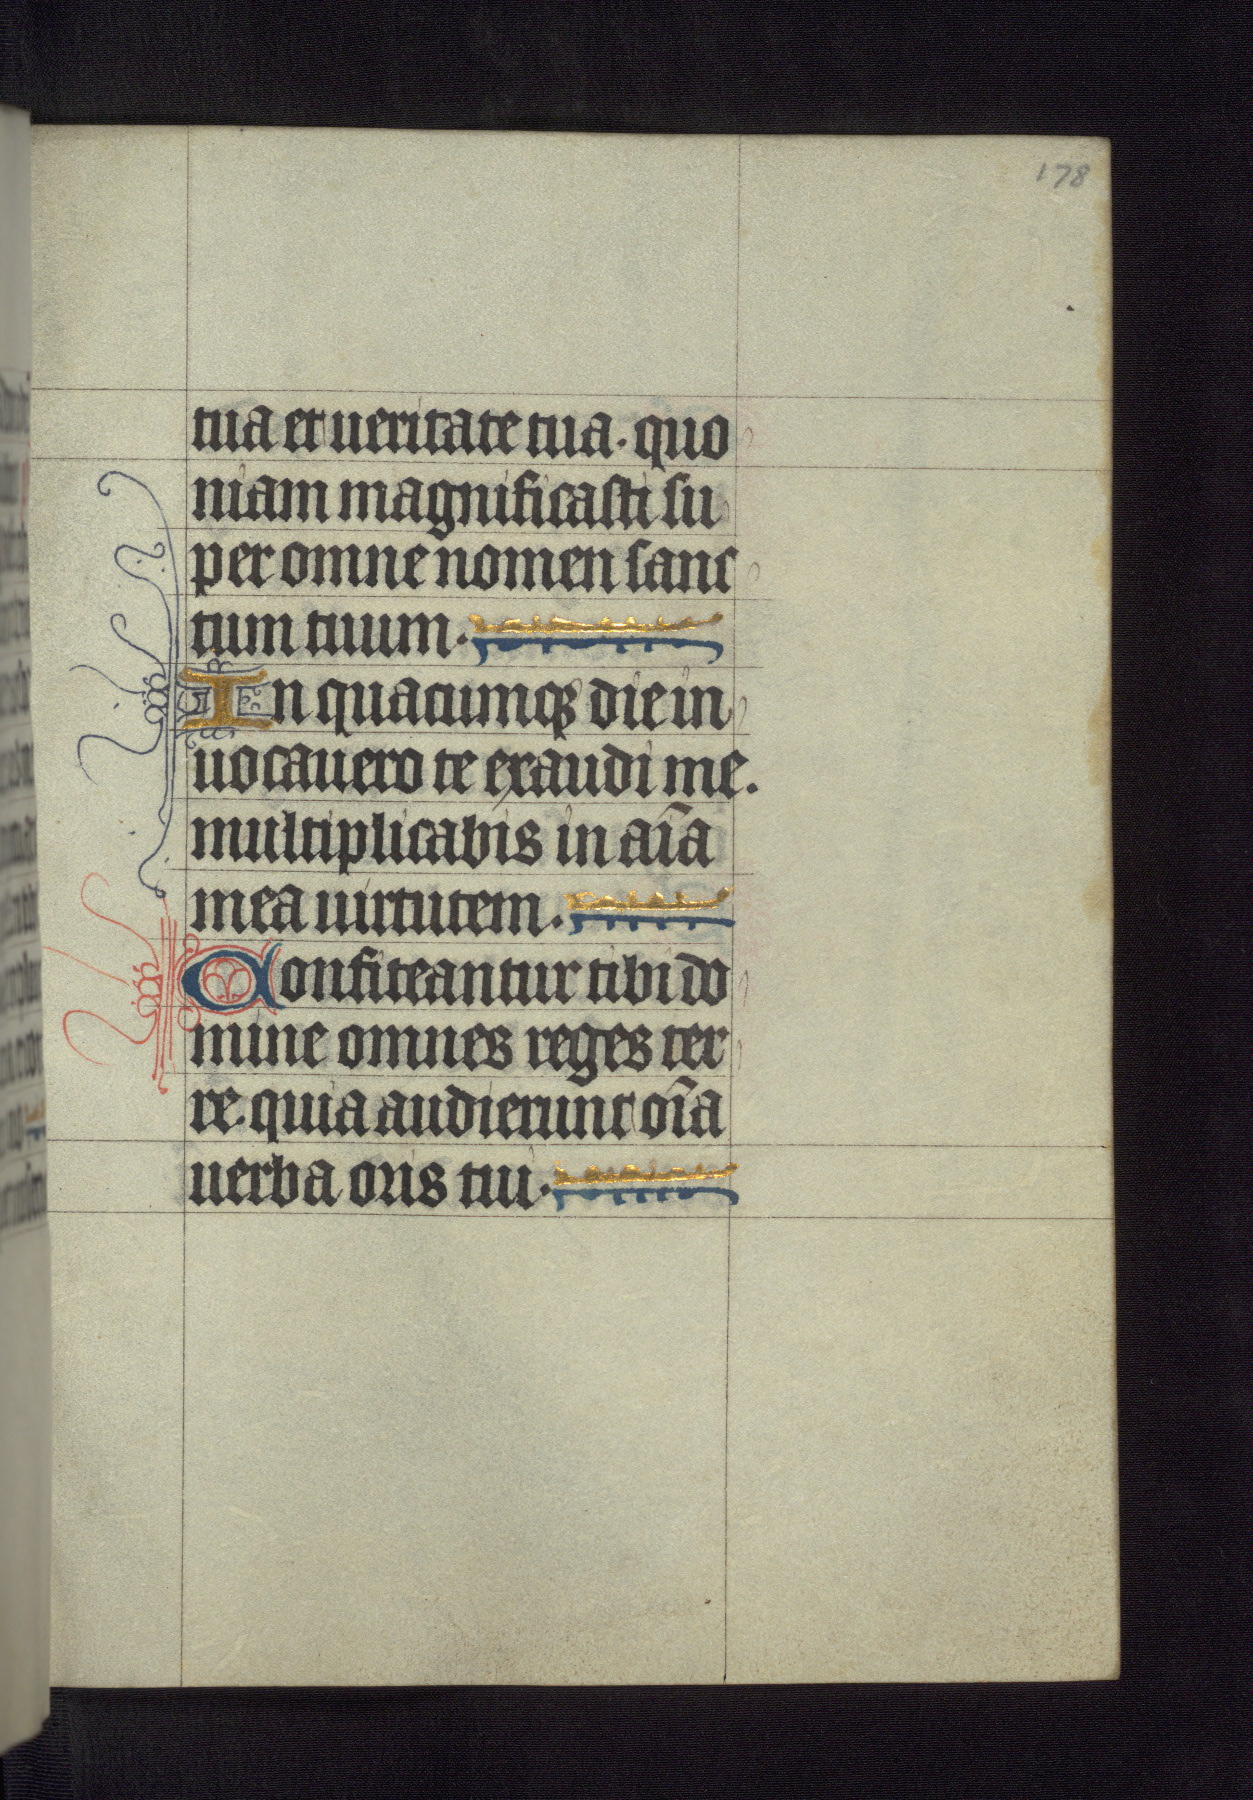 178
tua et ueritate tua. quo
niam magnificasti su
per omne nomen sanc
tum tuum.
In quacumqꝫ die in
uocauero te exaudi me.
multiplicabis in aīa
mea uirtutem.
Confiteantur tibi do
mine omnes reges ter
re. quia audierunt oīa
uerba oris tui.